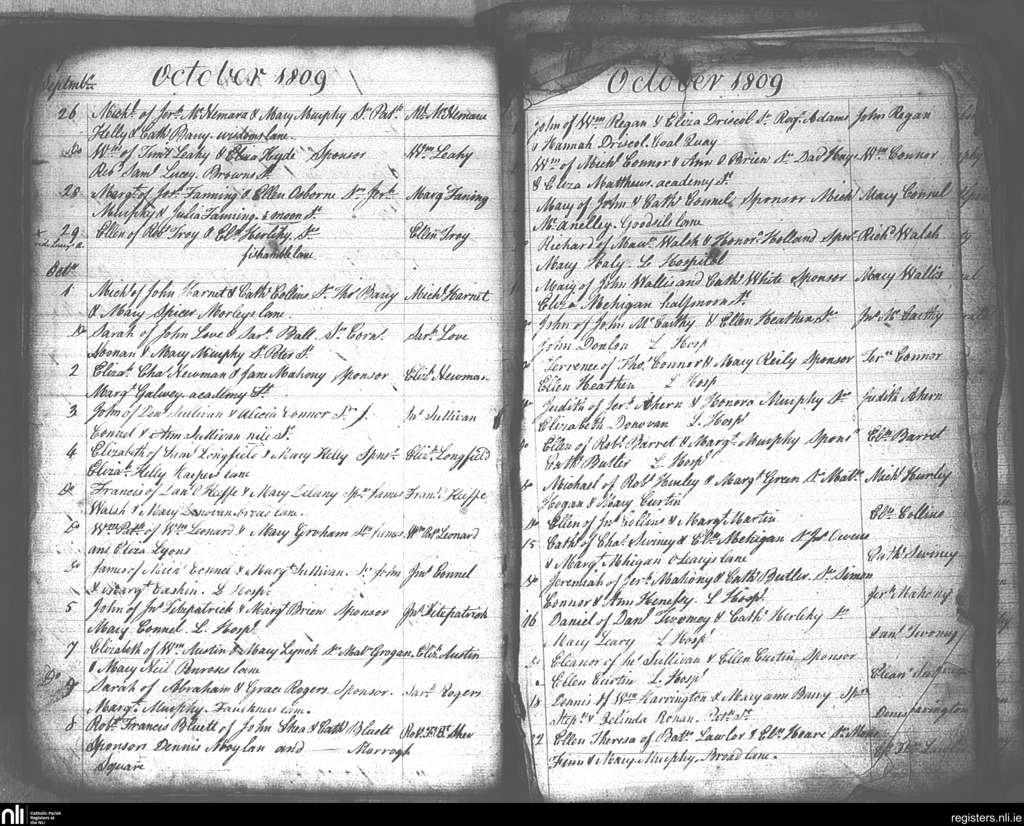 October 1809
Septmbr
26 Michl of Jerh McNemara & Mary Murphy Sr Pat. Ml McNemara
Kelly & Cath Barry. wisdoms lane
Do Wm of Timy Leahy & Eliza Hyde Sponsor Wm Leahy
Rebr Saml Lucy, Browns St
28 Margt of Jos. Fanning & Ellen Osborne Sr Jerh Marg Faning
Murphy & Julia Fanning. moon St.
29 Ellen of Robt Troy & Elzr Herlehy. Sr Ellen Troy
fishamble lane
Octr
1 Michl of John Harnet & Cath Collins Sr Thos Barry Michl Harnet
& Mary Spicer Morleys lane.
Do Sarah of John Love & Sarh Ball Sr Corns Sarh Love
Noonan & Mary Murphy St Peter St.
2 Elizat Chas Newman & Jane Mahony Sponsor Elizt Newman
Margt Galwey. academy St.
3 John of Danl Sullivan & Alicia Connor Sr J. Jn Sullivan
Connel & Ann Sullivan nile St.
4 Elizabeth of Saml Longfield & Mary Kelly Sponr Elizt Longfield
Elizat Kelly Harpers lane
Do Francis of Danl Keeffe & Mary Delany Spr James Frans Keeffe
Walsh & Mary Donovan lane.
Do Wm Patk of Wm Leonard & Mary Groham Sr James Wm Pat Leonard
and Eliza Lyons
Do James of Michl Connel & Margt Sullivan. Sr John Jms Connel
& Margt Cashin. L Hospl
5 John of Jno Fitzpatrick & Margt Brien Sponsor Jno Fitzpatrick
Mary Connel L. Hospl
7 Elizabeth of Wm Austin & Mary Lynch Sr Matt Grogan Eliz Austin
& Mary Neil Penroses lane
Do Sarah of Abraham & Grace Rogers Sponsor Sarh Rogers
Margt Murphy. Faulkners lane.
8 Robt Francis Bluett of John Shea & Cath Bluett Robt Shea
Sponsor Dennis Moylan and Murrogh
Square
October 1809
John of Wm Regan & Eliza Driscol Sr Rogr Adams John Regan
& Hannah Driscol. Coal Quay
Wm of Michl Connor & Ann O Brien Sr David Hays Wm Connor
& Eliza Matthews. academy St.
Mary of John & Cath Connel, Sponsor Michl Mary Connel
McAnelley. Goodsils lane
Richard of Maur Walsh & Honor Holland Sponr Richd Walsh
Mary Haly L Hospital
Mary of John Wallis and Cath White Sponsor Mary Wallis
Eliza Mehigan halfmoon St.
John of John McCarthy & Ellen Heathen Sr Jno McCarthy
John Donlon L Hosp
Terrence of Thos Connor & Mary Reily Sponsor Terce Connor
Ellen Heathen L Hosp
Judith of Jerh Ahern & Honora Murphy Sr Judith Ahern
Elizabeth Donovan L. Hospl
Ellen of Robt Barret & Margt Murphy Sponr Elln Barret
Cath Butler L. Hospl
Michael of Robt Hurley & Margt Green Sr Matt Michl Hurley
Hogan & Mary Curtin
Do Ellen of Jno Collins & Margt Martin Elln Collins
15 Cath of Chas Swiney & Elln Mehigan Sr Jos Owens Cath Swiney
& Margt Mehigan O Learys lane
Do Jeremiah of Jerh Mahony & Cath Butler. Sr Simon Jerh Mahony
Connor & Ann Henessy. L Hospl
16 Daniel of Danl Twomey & Cath Herlehy Sr Danl Twomy
Mary Leary L Hospl
Do Eleanor of Jno Sullivan & Ellen Curtin Sponsor Eleanr Sullivan
Ellen Curtin L. Hospl
18 Dennis of Wm Harrington & Mary ann Barry Spr Denis Harrington
Stepn & Belinda Ronan. Patk St.
22 Ellen Theresa of Batt Lawlor & Elln Hoare Sr
Finn & Mary Murphy. Broad lane.
nli
Catholic Parish
Registers at
the NLI
registers.nli.ie